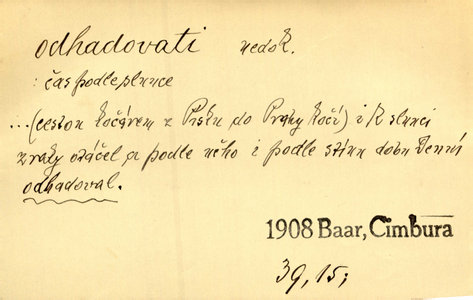 odhadovati nedok.
: čas podle slunce
...(cestou kočárem z Písku do Prahy kočí) i k slunci
zraky otáčel a podle něho i podle stínu dobu denní
odhadoval.
1908 Baar, Cimbura
39, 15;